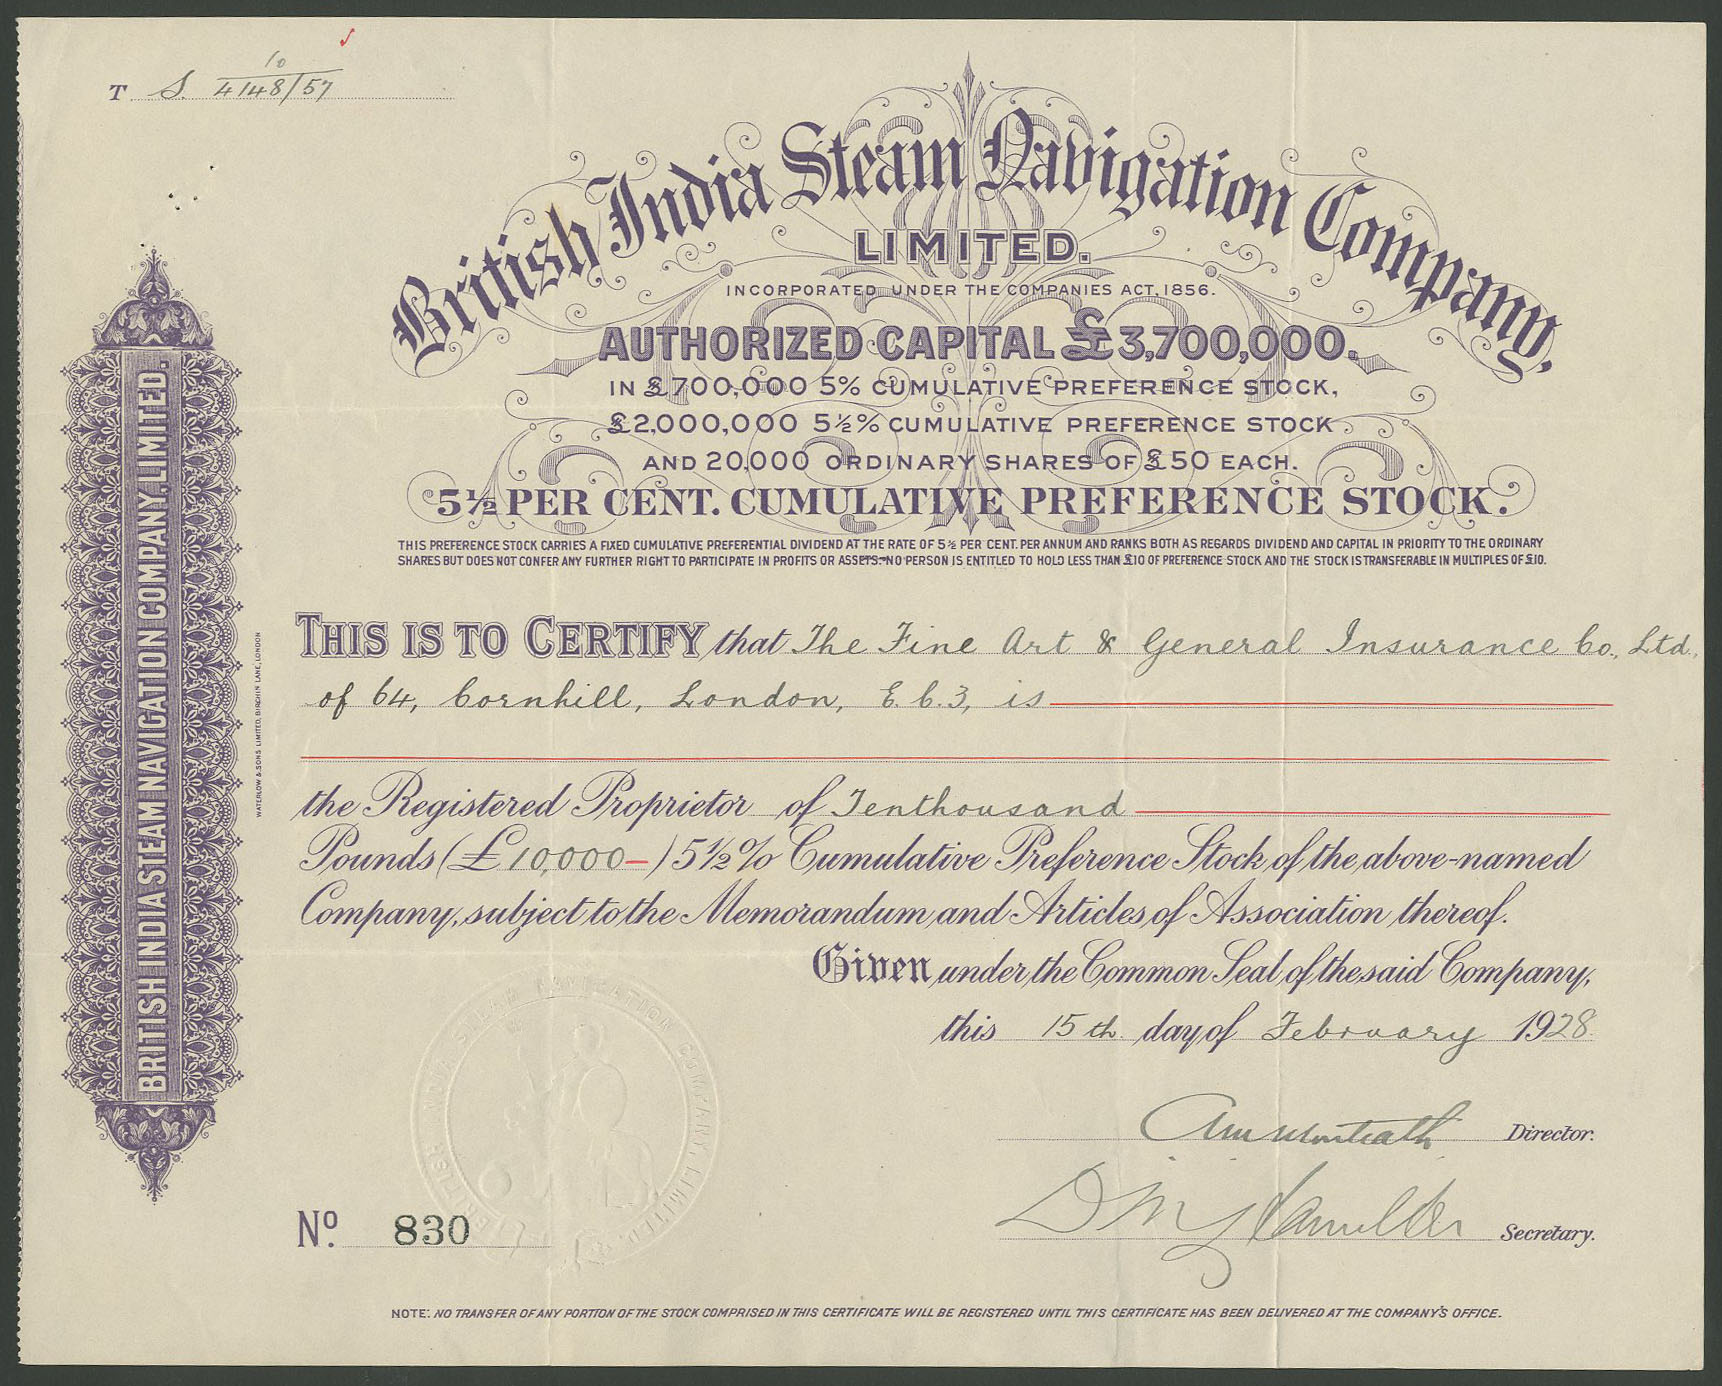 10
T S. 4148/57
British India Steam Navigation Company,
LIMITED.
INCORPORATED UNDER THE COMPANIES ACT, 1856.
AUTHORIZED CAPITAL £3,700,000.
IN £700,000 5% CUMULATIVE PREFERENCE STOCK,
£2,000,000 5½% CUMULATIVE PREFERENCE STOCK
AND 20,000 ORDINARY SHARES OF £50 EACH.
5½ PER CENT. CUMULATIVE PREFERENCE STOCK.
THIS PREFERENCE STOCK CARRIES A FIXED CUMULATIVE PREFERENTIAL DIVIDEND AT THE RATE OF 5½ PER CENT. PER ANNUM AND RANKS BOTH AS REGARDS DIVIDEND AND CAPITAL IN PRIORITY TO THE ORDINARY
SHARES BUT DOES NOT CONFER ANY FURTHER RIGHT TO PARTICIPATE IN PROFITS OR ASSETS.–NO PERSON IS ENTITLED TO HOLD LESS THAN £10 OF PREFERENCE STOCK AND THE STOCK IS TRANSFERABLE IN MULTIPLES OF £10.
BRITISH INDIA STEAM NAVIGATION COMPANY, LIMITED.
WATERLOW & SONS LIMITED, BIRCHIN LANE, LONDON
THIS IS TO CERTIFY that The Fine Art & General Insurance Co., Ltd.,
of 64, Cornhill, London, E.C.3, is
the Registered Proprietor of Tenthousand
Pounds (£10,000–) 5½% Cumulative Preference Stock of the above-named
Company, subject to the Memorandum and Articles of Association thereof.
Given under the Common Seal of the said Company,
this 15th day of February 1928.
Director.
Secretary.
BRITISH INDIA STEAM NAVIGATION COMPANY, LIMITED.
No. 830
NOTE: NO TRANSFER OF ANY PORTION OF THE STOCK COMPRISED IN THIS CERTIFICATE WILL BE REGISTERED UNTIL THIS CERTIFICATE HAS BEEN DELIVERED AT THE COMPANY'S OFFICE.